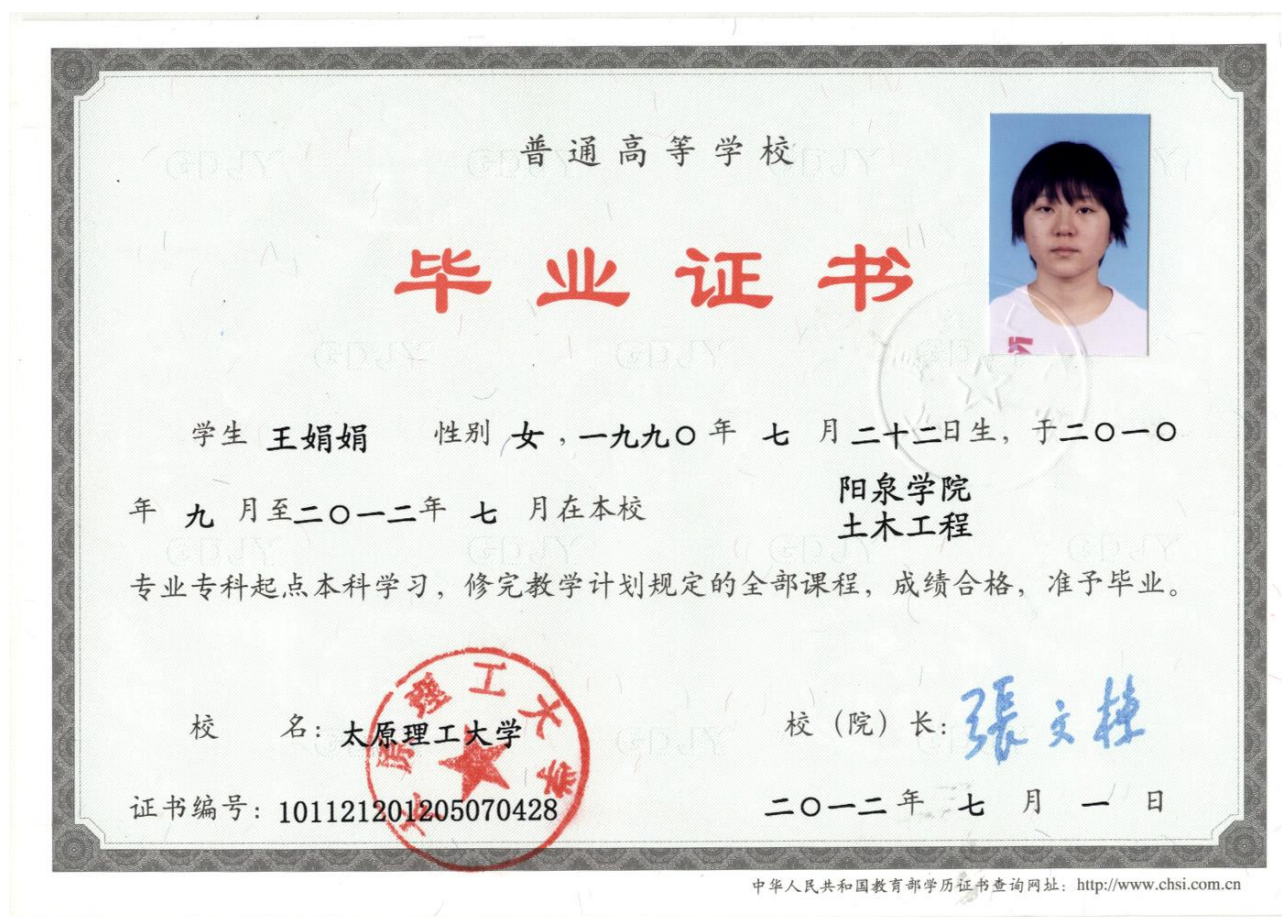 普通高等学校
毕业证书
学生 王娟娟 性别 女，一九九〇年 七 月二十二日生，于二〇一〇
年 九 月至二〇一二年 七 月在本校 阳泉学院
土木工程
专业专科起点本科学习，修完教学计划规定的全部课程，成绩合格，准予毕业。
校 名：太原理工大学 校（院）长：張文棟
太原理工大学
证书编号：101121201205070428 二〇一二年 七 月 一 日
中华人民共和国教育部学历证书查询网址：http://www.chsi.com.cn